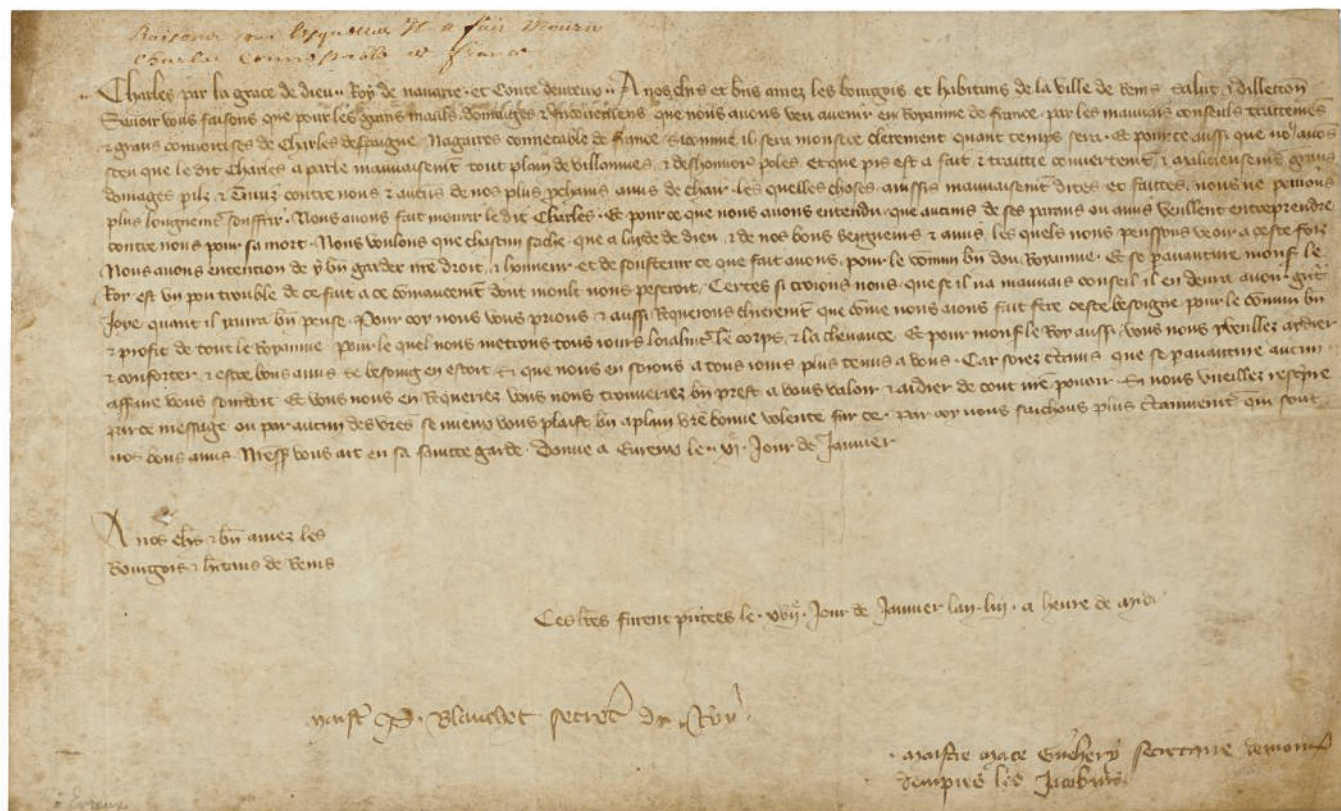 Raisons pour lesquelles il a fait mourir
Charles Connestable de france
Charles par la grace de dieu Roy de nauarre et Conte deureux A nos chrs et bns amez les bourgois et habitans de la ville de Reins salut & dillection
Sauoir vous faisons que pour les grans maulx domaiges & Inconueniens que nous auons veu auenir en Royaume de france par les mauuais conseuls traittemens
& grans conuoitises de Charles despaigne Nagaires connestable de france sicomme il sera monstre clerement quant temps sera Et pour ce aussi que no auons
sceu que le dit Charles a parle mauuaisement tout plain de villannies & deshonnor poles et que pis est a fait & traittie couuertement & malicieusement grans
domages pilz & Ennuz contre nous & aucuns de nos plus pchains amis de char les quelles choses ainssis mauuaisement dites et faittes nous ne pouions
plus longuemt souffrir Nous auons fait mourir le dit Charles Et pour ce que nous auons entendu que aucuns de ses parans ou amis veullent entreprendre
contre nous pour sa mort Nous voulons que chascun sache que a laide de dieu & de nos bons seigneurs & amis les quels nous penssons veoir a ceste fois
Nous auons entencion de y bn garder nre droit & honneur et de soustenir ce que fait auons pour le commun bn dou Royaume Et se pauanture mons le
Roy est vn pou trouble de ce fait a ce comancemt dont moult nous peseroit Certes si creions nous que se il na mauuais conseil il en deura auoir gnt
Joye quant il y aura bn pense Pour coy nous vous prions & aussi Requerons chierement que come nous aions fait fere ceste besoigne pour le commun bn
& profit de tout le Royaume pour le quel nous metrons tous iours loialmt le corps & la cheuance Et pour mons le Roy aussi vous nous y veillez aidier
& conforter & estre bons amis se besoing en estoit Si que nous en soions a tous iours plus tenus a vous Car soiez certains que se pauanture aucun
affaire vous sourdoit Et vous nous en Requeriez vous nous trouueriez bn prest a vous valoir & aidier de tout nre pouair Si nous vueillez rescpre
par ce message ou par aucun des vres se mieux vous plaist bn a plain vre bonne volente sur ce par coy nous sachons plus certainement qui sont
nos bons amis Nress vous ait en sa saincte garde Donne a Eureux le vi Jour de Januier
A nos chrs & bn amez les
Bourgois & hitans de Reins
Ces lres furent pntees le xvij Jour de Januier lan liij a heure de midi
maist P. Blanchet secret du Roy
maistre mace Guehery secretaire
les Jacobins
Evreux